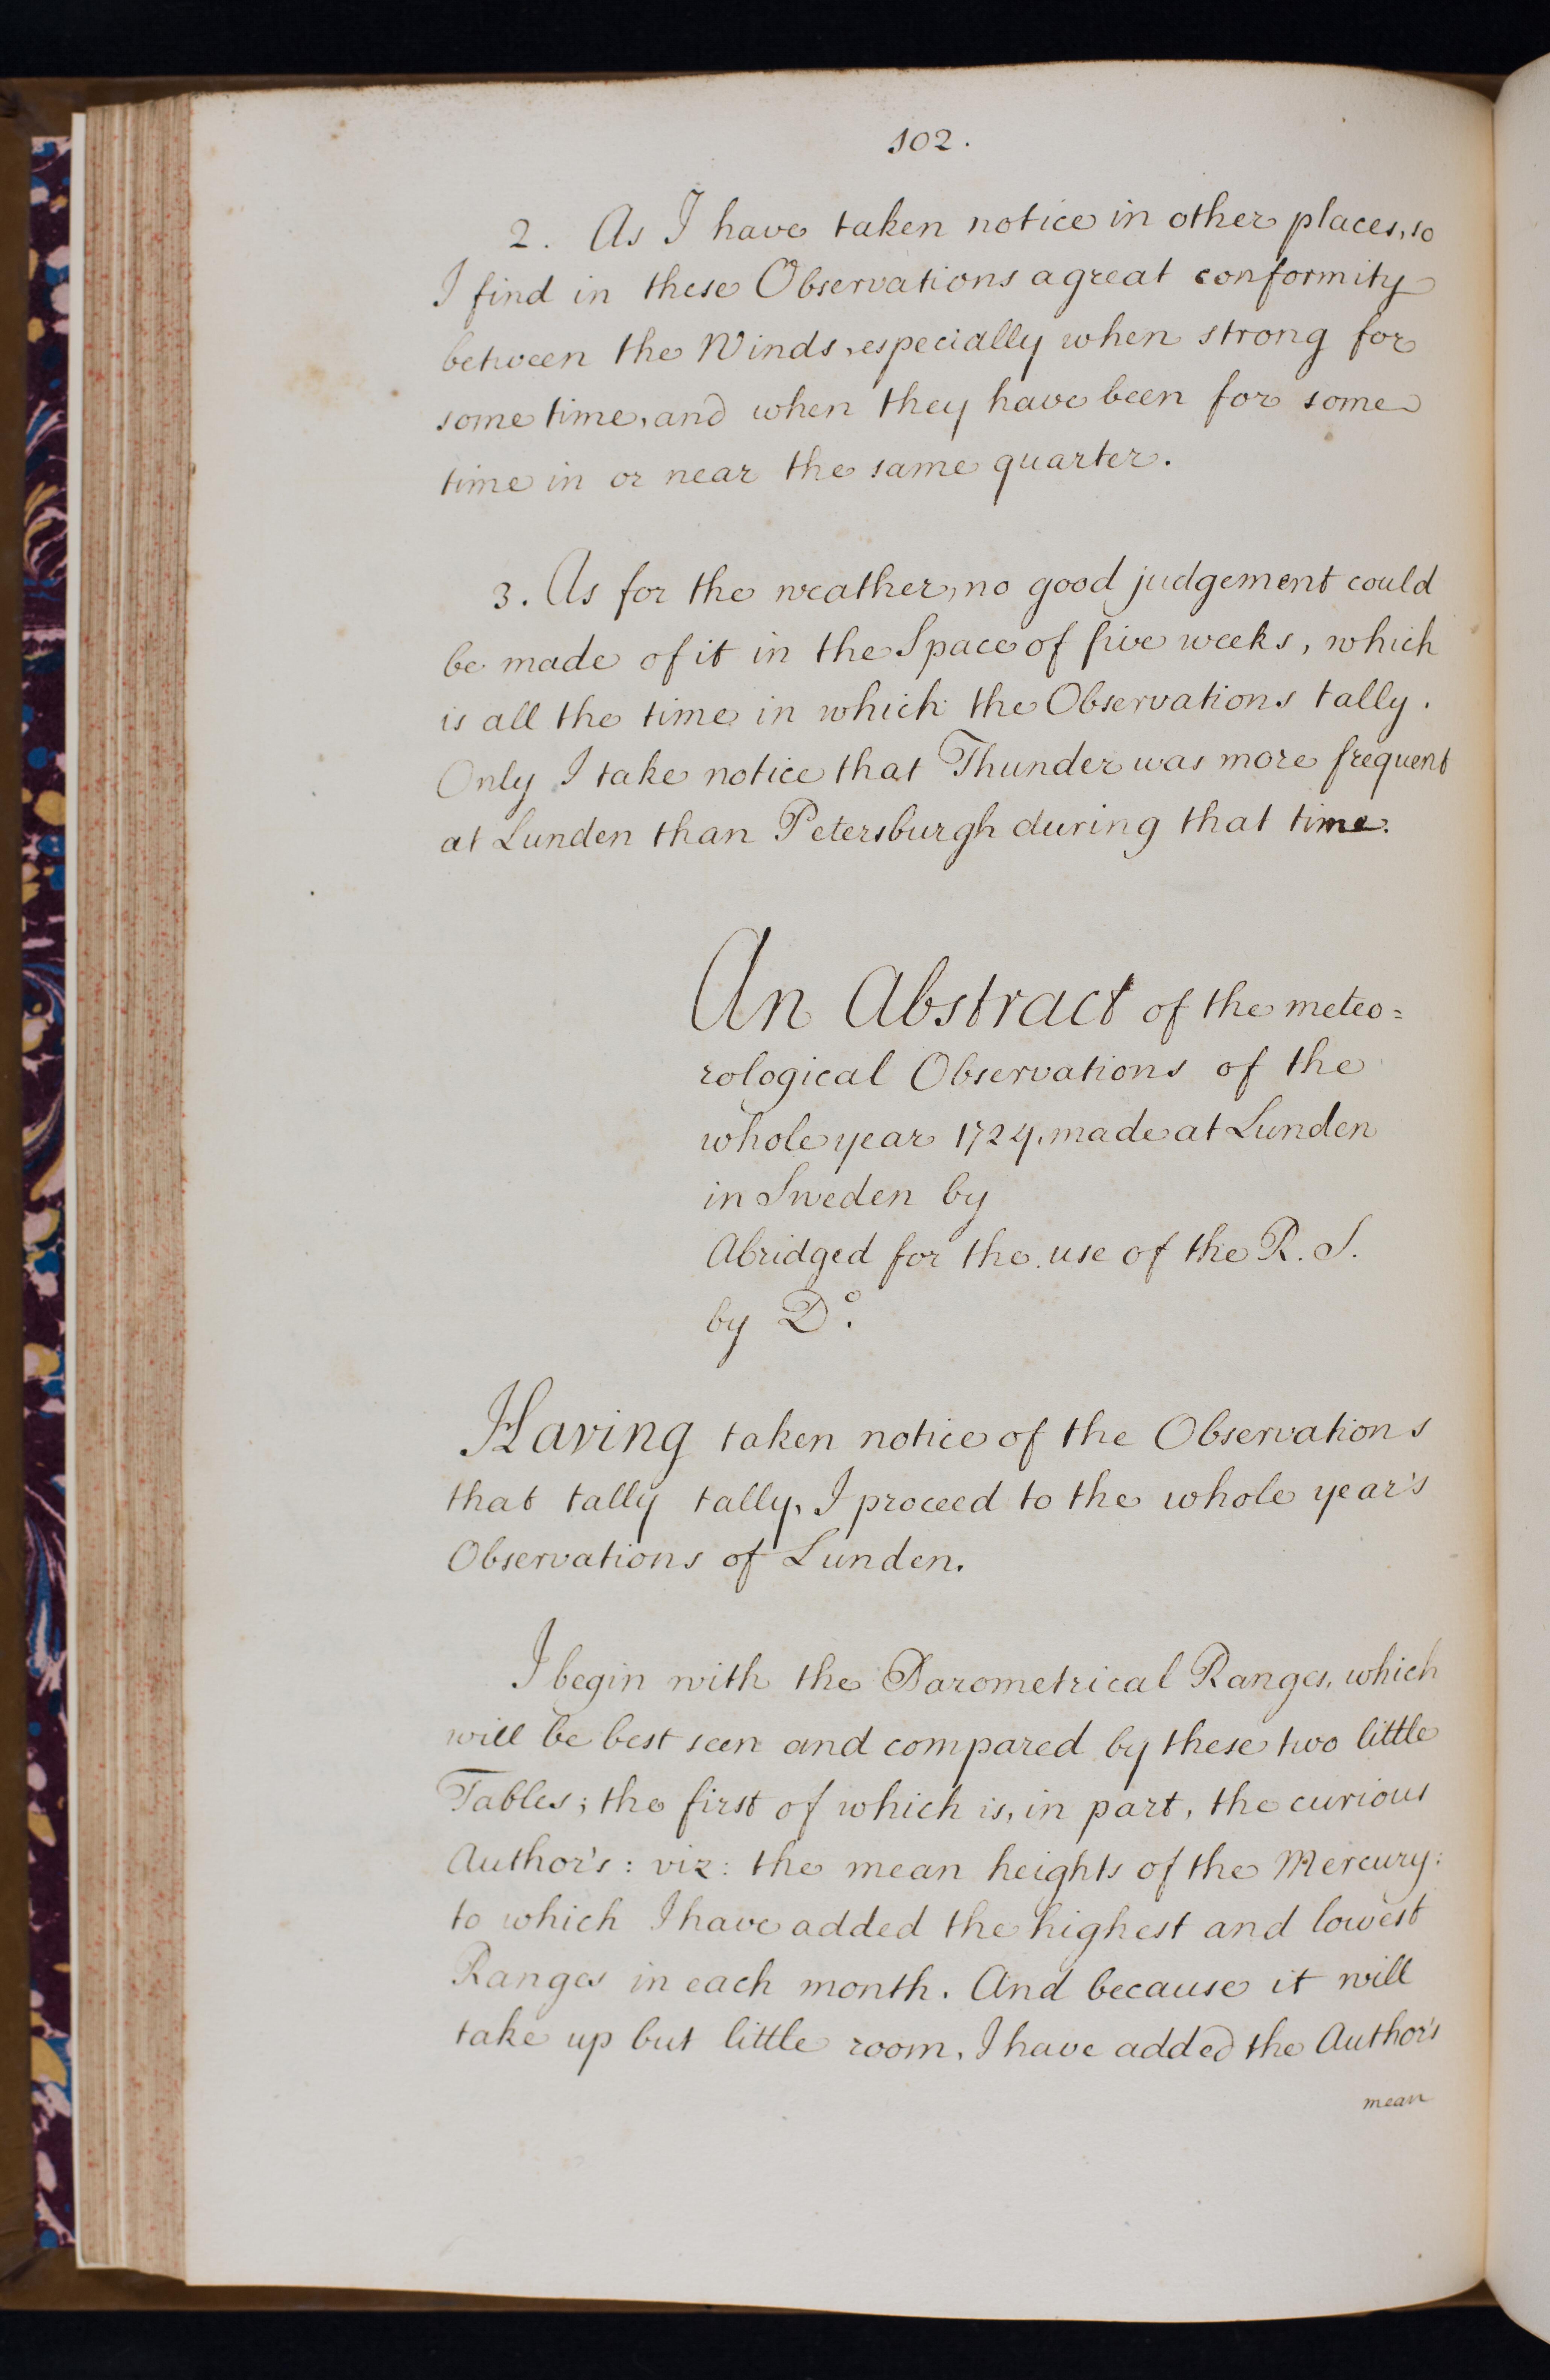 102.
2. As I have taken notice in other places, so
I find in these Observations a great conformity
between the Winds, especially when strong for
some time, and when they have been for some
time in or near the same quarter.
3. As for the weather, no good judgement could
be made of it in the Space of five weeks, which
is all the time in which the Observations tally.
Only I take notice that Thunder was more frequent
at Lunden than Petersburgh during that time.
An Abstract of the meteo=
rological Observations of the
whole year 1724, made at Lunden
in Sweden by
Abridged for the use of the R. S.
by Do.
Having taken notice of the Observations
that tally tally, I proceed to the whole year's
Observations of Lunden.
I begin with the Barometrical Ranges, which
will be best seen and compared by these two little
Tables; the first of which is, in part, the curious
Author's: viz: the mean heights of the Mercury:
to which I have added the highest and lowest
Ranges in each month. And because it will
take up but little room, I have added the Author's
mean